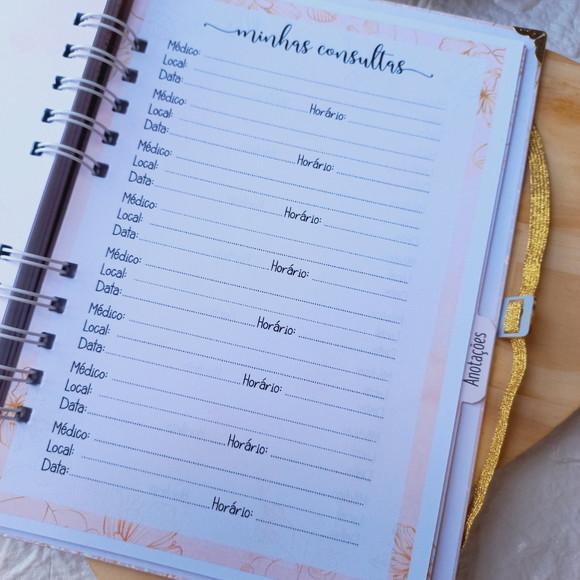 minhas consultas
Médico:
Local:
Data: Horário:
Médico:
Local:
Data: Horário:
Médico:
Local:
Data: Horário:
Médico:
Local:
Data: Horário:
Médico:
Local:
Data: Horário:
Médico:
Local:
Data: Horário:
Médico:
Local:
Data: Horário:
Médico:
Local:
Data: Horário:
Anotações